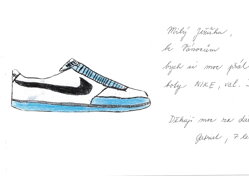 Milý Ježíšku,
k Vánocům
bych si moc přál
boty NIKE, vel.
Děkuji moc
7 let